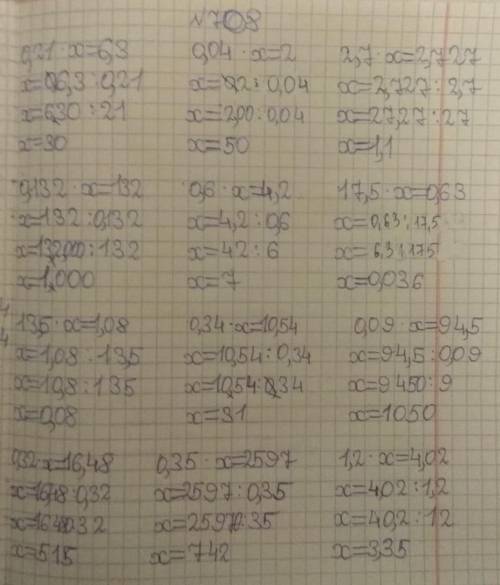 №708
0,21 · x=6,3
x=6,3 : 0,21
x=630 : 21
x=30
0,04 · x=2
x=2 : 0,04
x=2,00 : 0,04
x=50
2,7 · x=2,727
x=2,727 : 2,7
x=27,27 : 27
x=1,1
0,132 · x=132
x=132 : 0,132
x=132,000 : 132
x=1,000
0,6 · x=4,2
x=4,2 : 0,6
x=42 : 6
x=7
17,5 · x=0,63
x=0,63 : 17,5
x=6,3 : 175
x=0,036
13,5 · x=1,08
x=1,08 : 13,5
x=10,8 : 135
x=0,08
0,34 · x=10,54
x=10,54 : 0,34
x=10,54 : 0,34
x=31
0,09 · x=94,5
x=94,5 : 0,09
x=9450 : 9
x=1050
0,32 · x=16,48
x=16,48 : 0,32
x=1648 : 032
x=515
0,35 · x=2597
x=2597 : 0,35
x=25970 : 35
x=742
1,2 · x=4,02
x=402 : 1,2
x=40,2 : 12
x=3,35